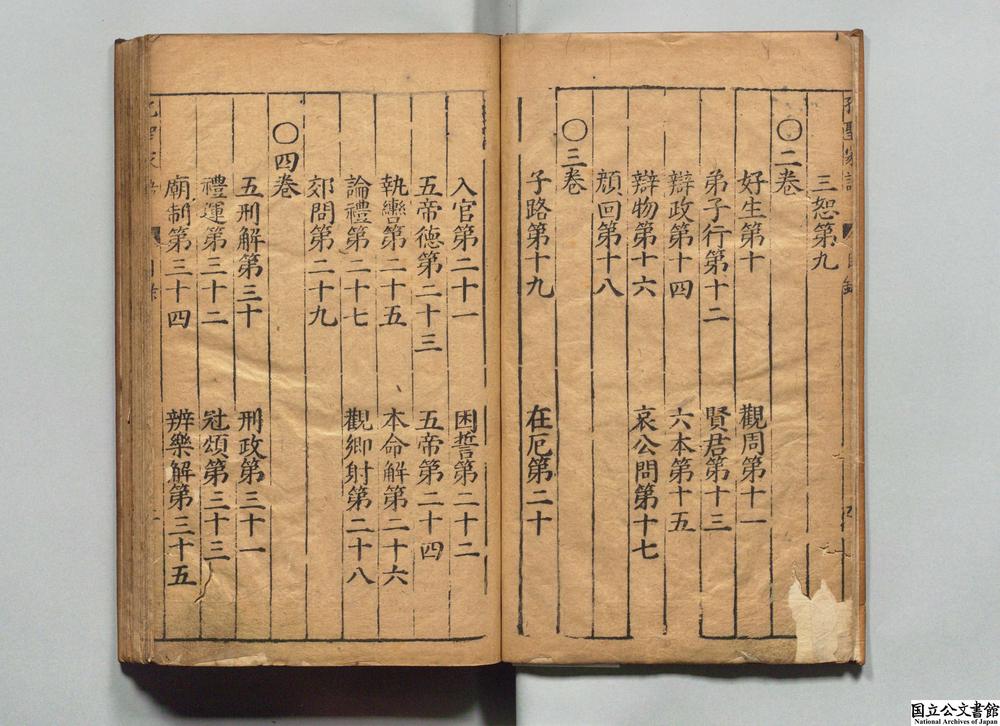 三恕第九
〇二卷
好生第十　觀周第十一
弟子行第十二　賢君第十三
辯政第十四　六本第十五
辯物第十六　哀公問第十七
顏回第十八
〇三卷
子路第十九　在厄第二十
入官第二十一　困誓第二十二
五帝德第二十三　五帝第二十四
執轡第二十五　本命解第二十六
論禮第二十七　觀鄉射第二十八
郊問第二十九
〇四卷
五刑解第三十　刑政第三十一
禮運第三十二　冠頌第三十三
廟制第三十四　辨樂解第三十五
国立公文書館
National Archives of Japan